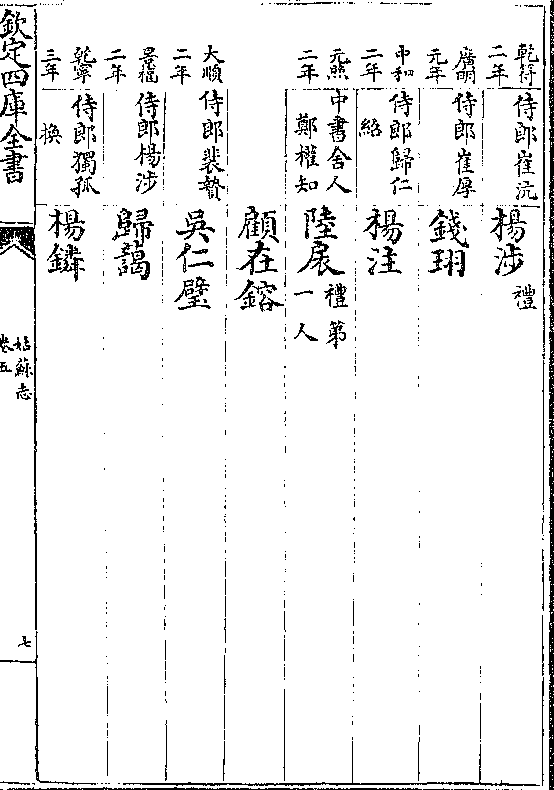 乾符二年 侍郎崔沆 楊涉禮
廣明元年 侍郎崔厚 錢珝
中和二年 侍郎歸仁紹 楊注
元熙二年 中書舍人鄭權知 陸扆禮第一人
顧在鎔
大順二年 侍郎裴贄 吳仁璧
景福二年 侍郎楊涉 歸藹
乾寧三年 侍郎獨孤換 楊鏻
欽定四庫全書
姑蘇志
卷五
七